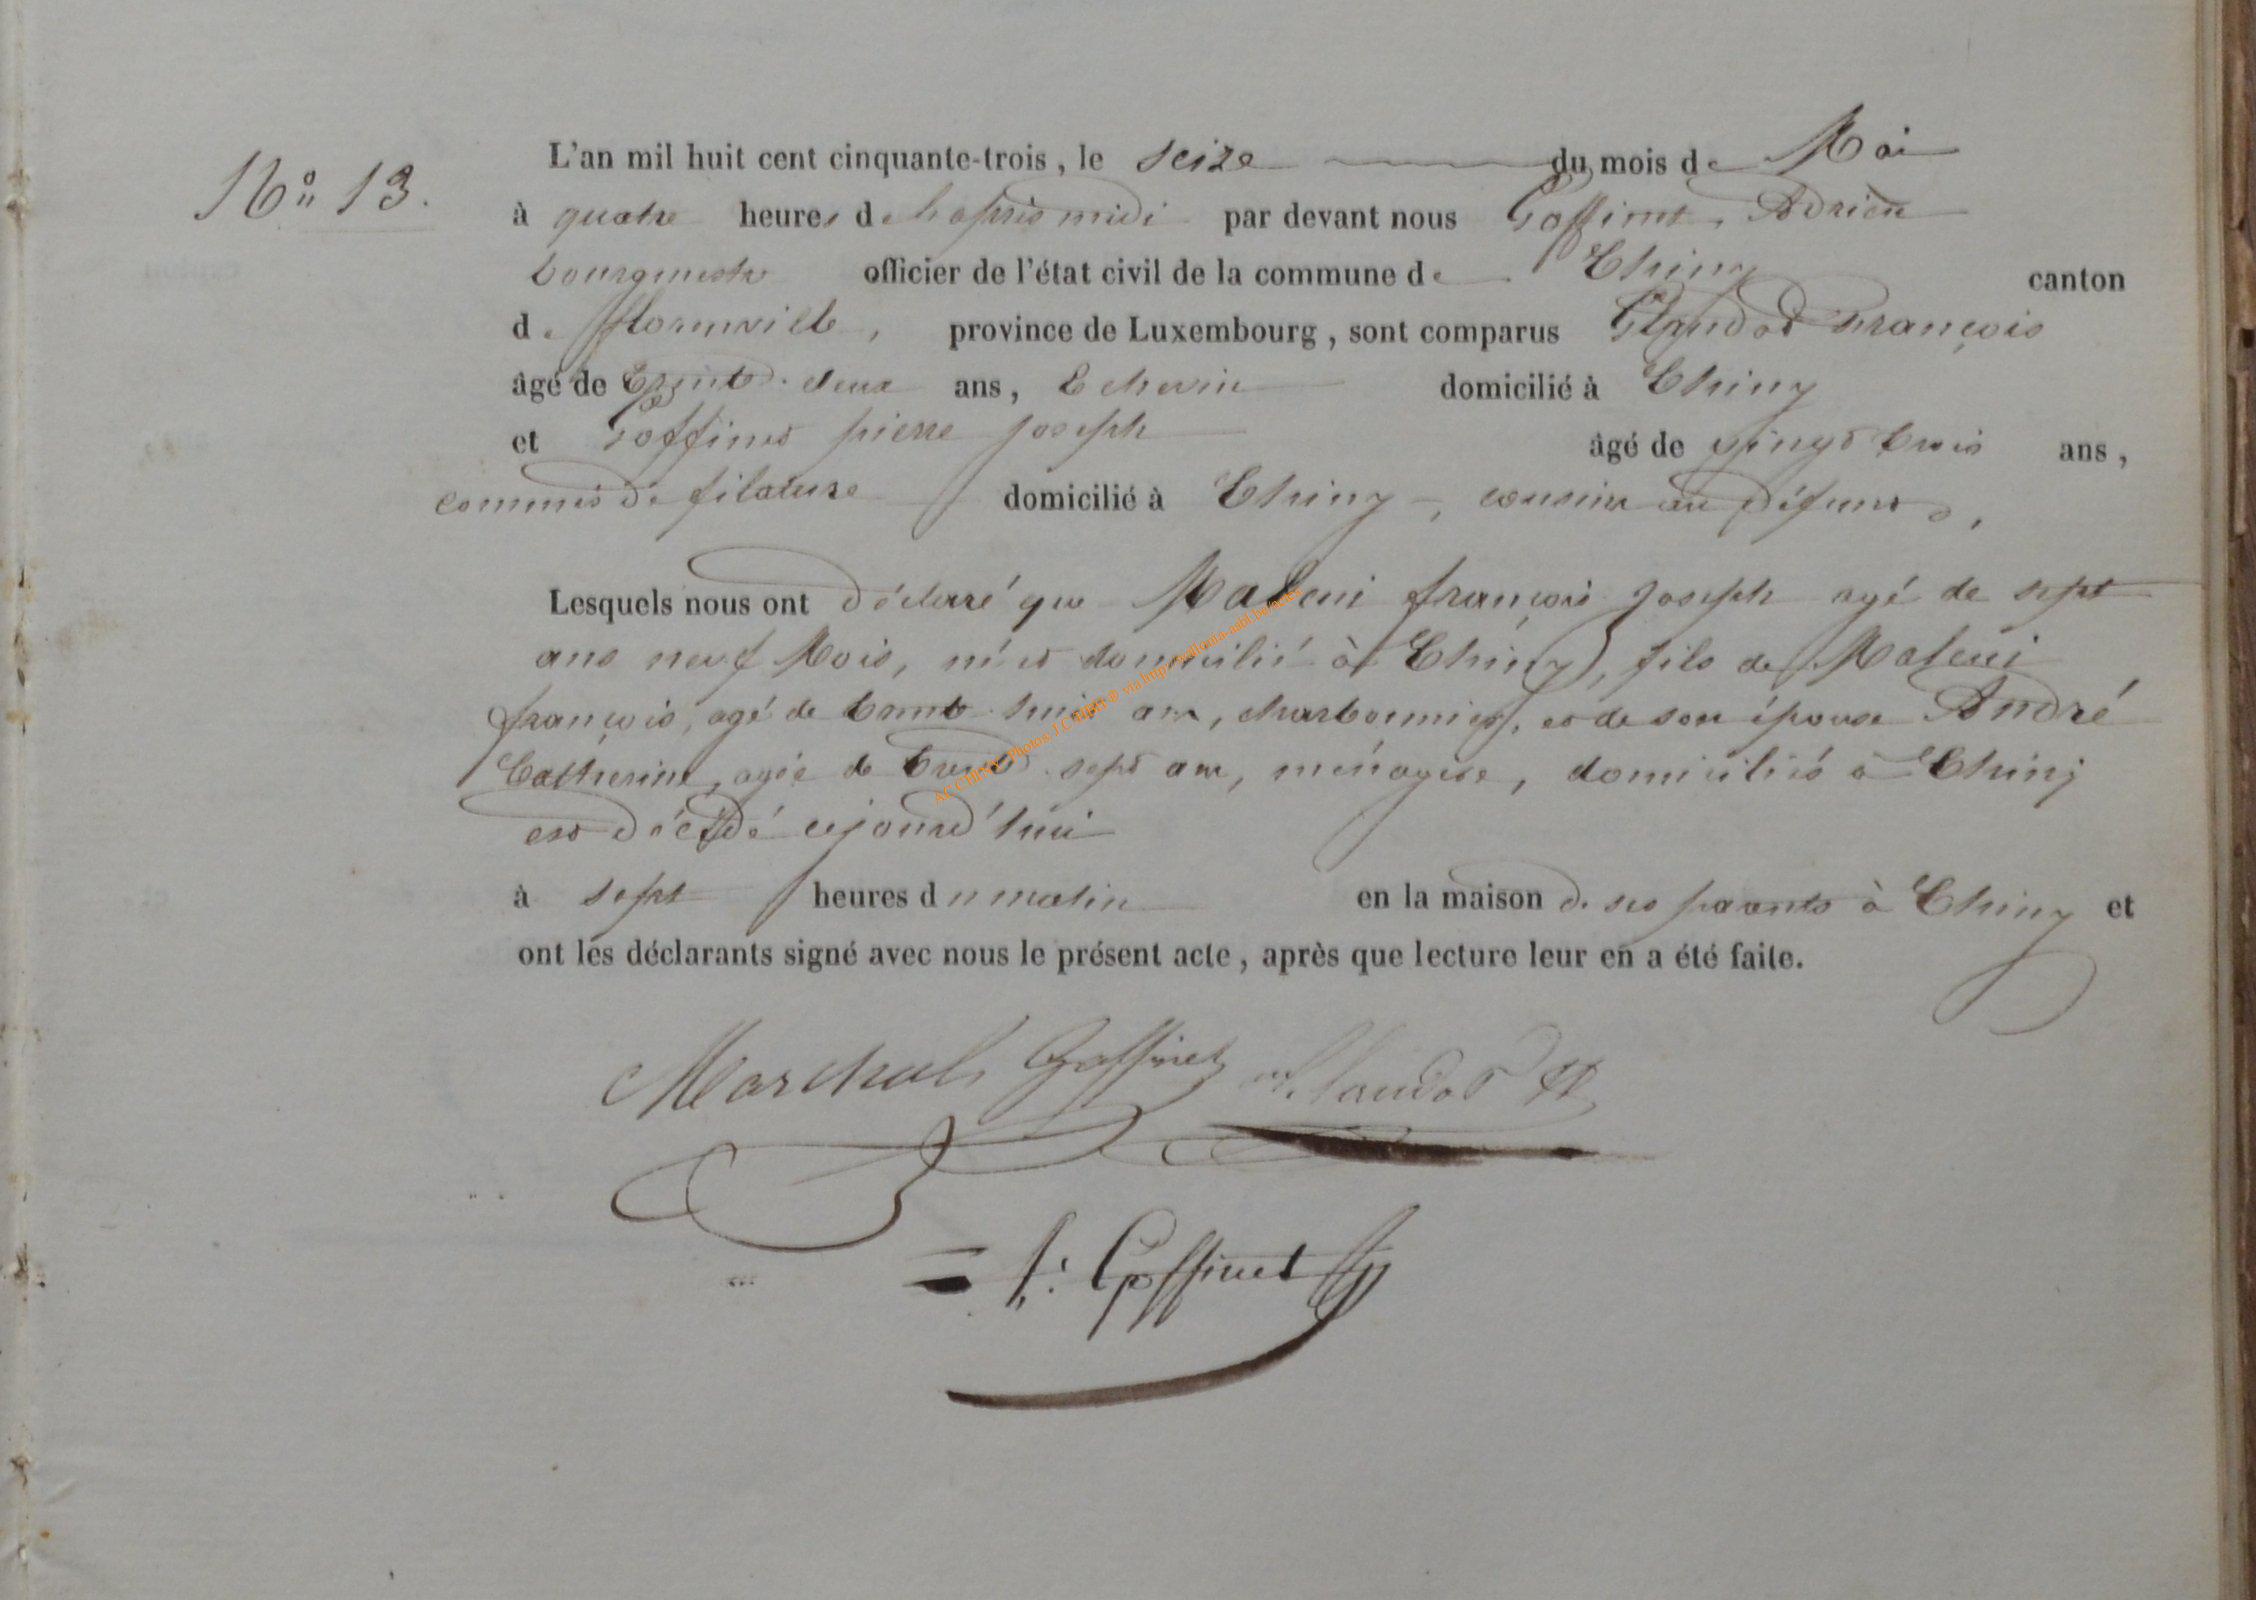 N° 13.
L'an mil huit cent cinquante-trois, le seize du mois de Mai
à quatre heures de l'après midi par devant nous Goffinet, Adrien
bourgmestre officier de l'état civil de la commune de Chiny canton
de florenville, province de Luxembourg, sont comparus Claudot François
âgé de trente deux ans, Echevin domicilié à Chiny
et Goffinet pierre joseph âgé de vingt trois ans,
commis de filature domicilié à Chiny, cousin au défunt,
Lesquels nous ont déclaré que françois Joseph agé de sept
ans neuf Mois, né et domicilié à Chiny, fils de
françois, agé de trente huit ans, charbonnier, et de son épouse André
Catherine, agée de trente sept ans, ménagère, domiciliés à Chiny
est décédé cejourd'hui
à sept heures du matin en la maison de ses parents à Chiny et
ont les déclarants signé avec nous le présent acte, après que lecture leur en a été faite.
Marchal Goffinet Claudot
Goffinet